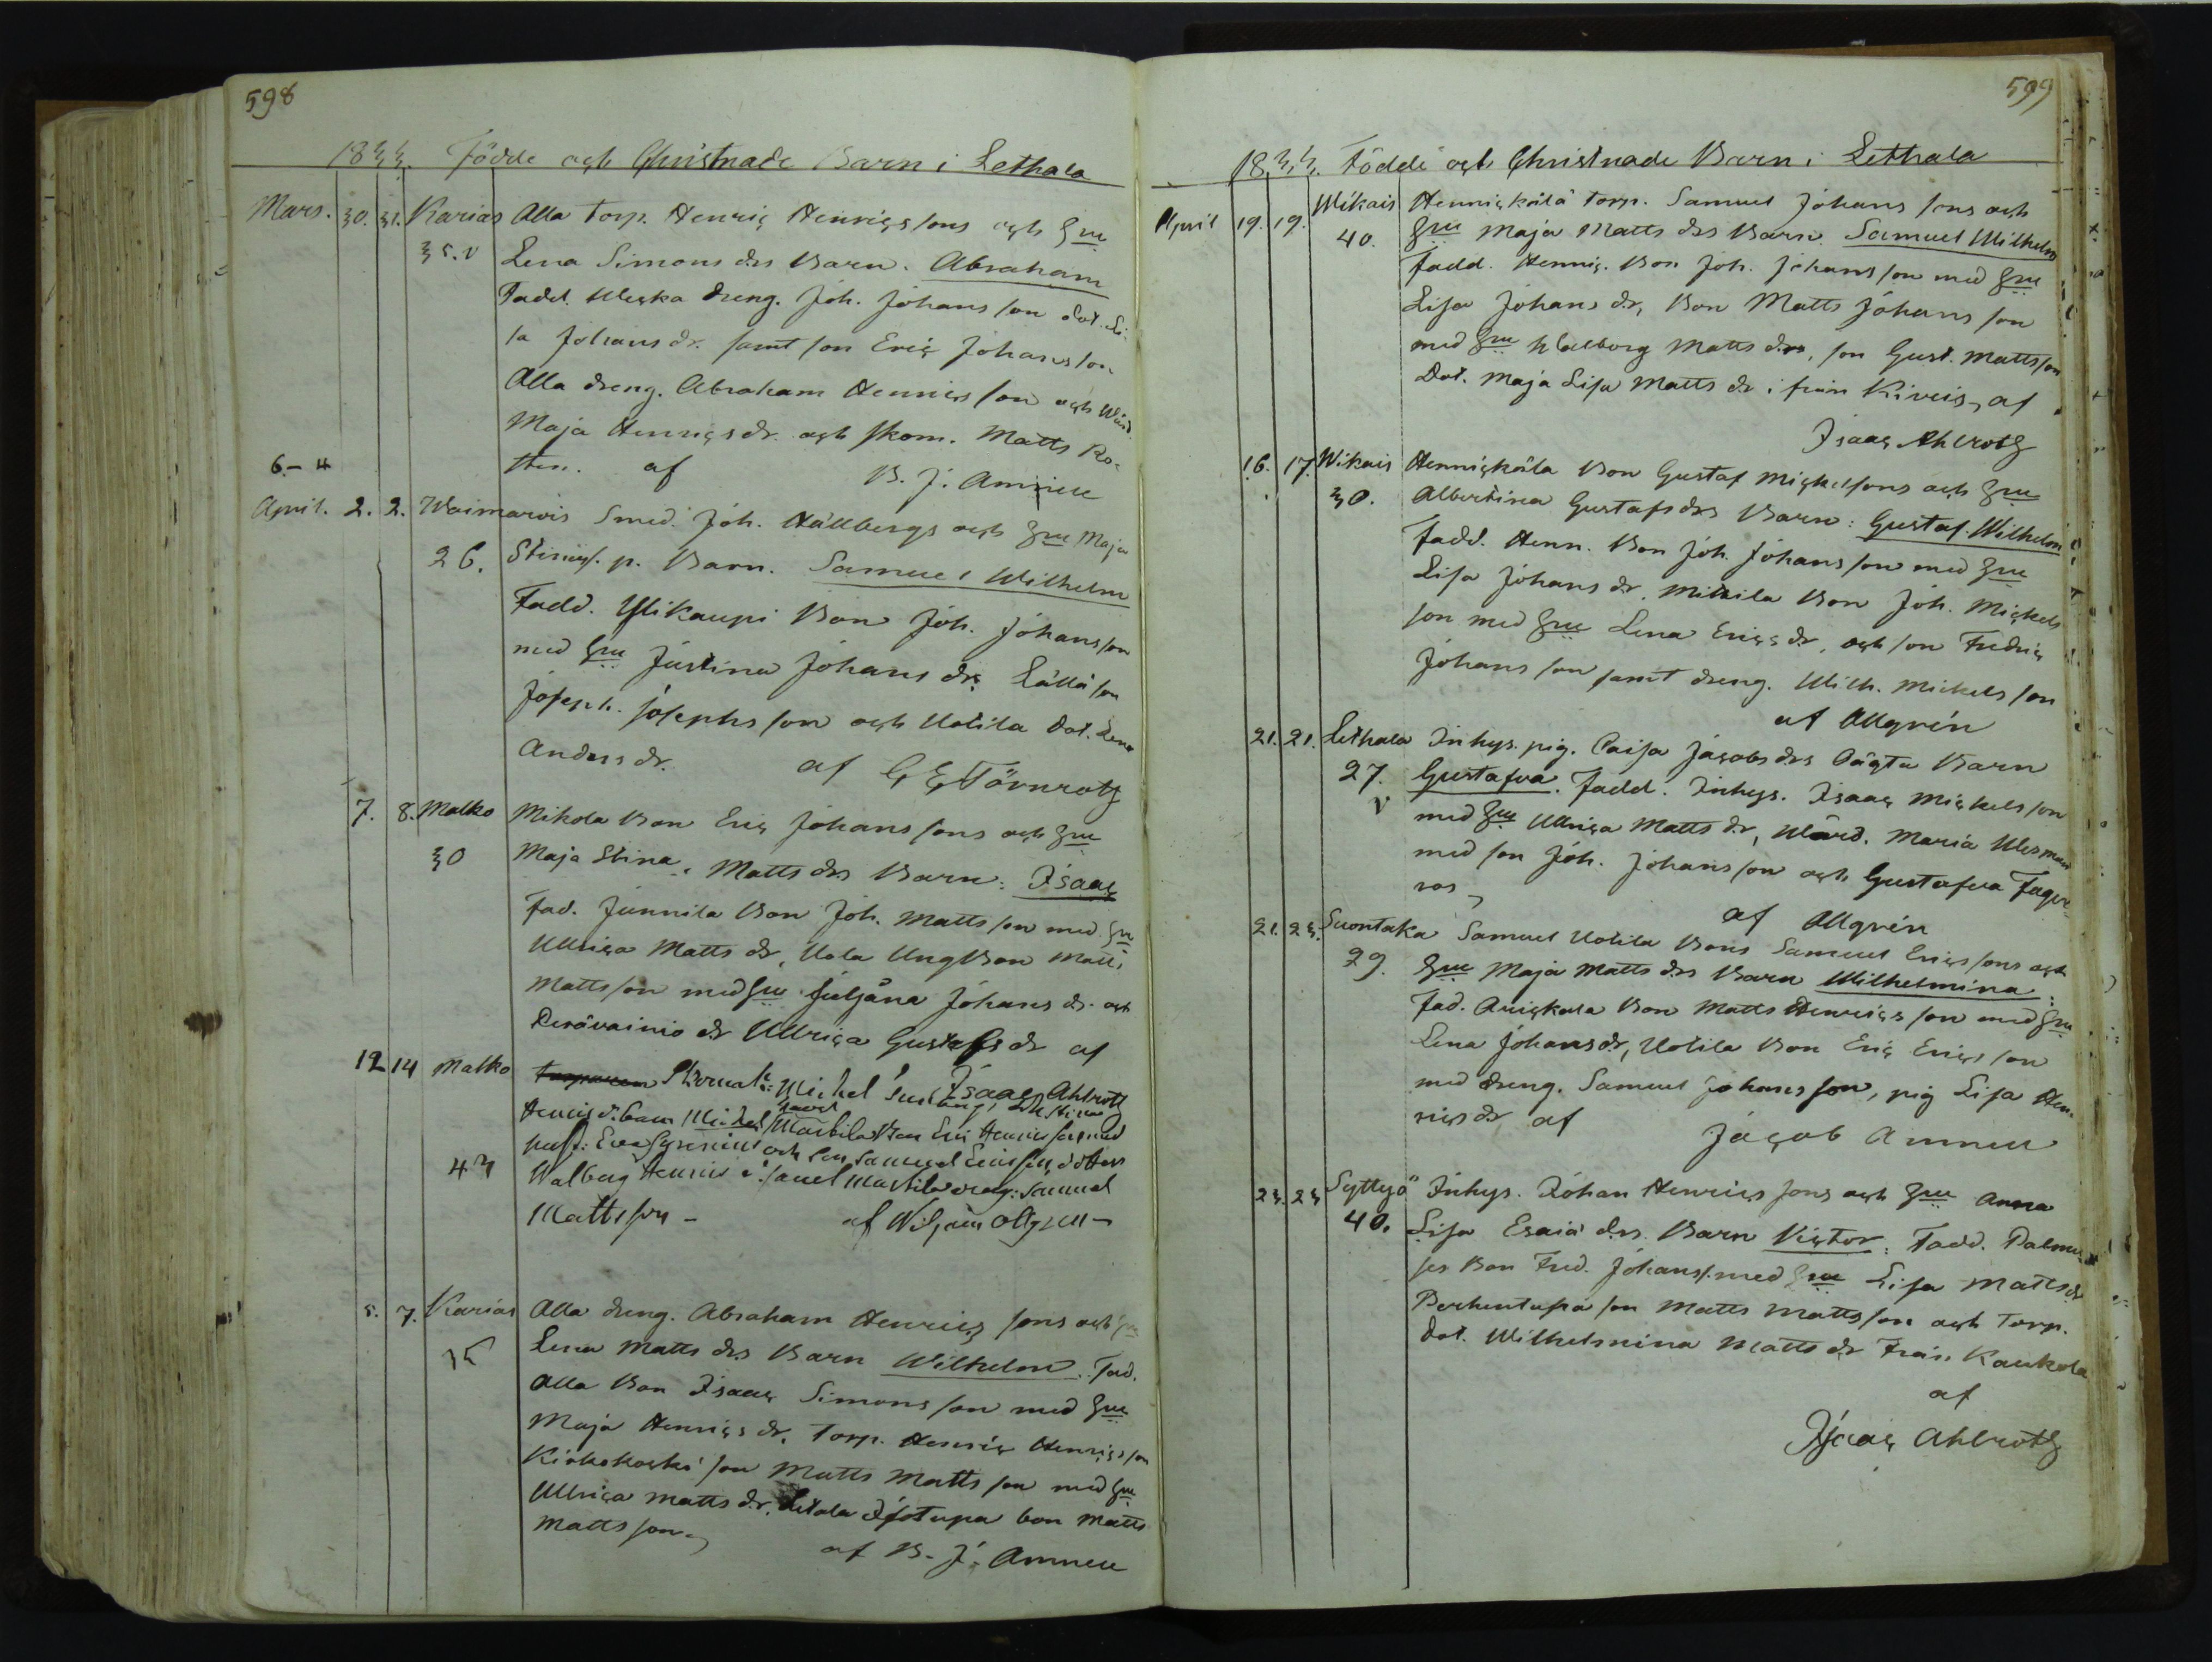 598
1844. Födde och Christnade Barn i Lethala
Mars. 30. 31. Karias Alla torp. Henric Henricssons och Hu
35. v Lena Simons drs Barn. Abraham
Fadd. dreng. Joh. Johansson dot. Li-
sa Johansdr. samt son Eric Johansson
Alla dreng. Abraham Henricsson och Wärd.
Maja Henricsdr. och skom. Matts Ro-
sten. af B. J. Amnell
6-4
April. 2. 2. Waimarois Smed. Joh. Hällbergs och Hu Maja
26. Stina p. Barn. Samuel Wilhelm
Fadd. Ylikaupi Bon Joh. Johansson
med Hu Justina Johans dr, Lällä son
Joseph. Josephsson och Uotila dot. Lena
Anders dr. af G E Törnroth
7. 8. Malko Mikola Bon Eric Johanssons och Hu
30 Maja Stina Matts drs Barn: Isaac
Fad. Junnila Bon Joh. Mattsson med Hu
Ullrica Matts dr, Uola Ung Bon Matts
Mattsson med Hu Juljana Johans dr och
Perävainio dr Ullrica Gustafs dr af
Isaac Ahlroth
12 14 Malko Michel
Henrics dr. barn Michel Marttila Bon Eric Henricsson med
hust: Eva och son Samuel Ericsson dotter
43 Walborg Henrics dr. samt Marttila dreng: Samuel
Mattsson - af Wilhelm Allgren -
5. 7. Karias Alla dreng. Abraham Henrics sons och Hu
35 Lena Matts drs Barn Wilhelm. Fad.
Alla Bon Isaac Simonsson med Hu
Maja Henrics dr, Torp. Henric Henricsson
Kiokokoski son Matts Mattsson med Hu
Ullrica Matts dr. Letala Isotupa bon Matts
Mattsson af B. J. Amnell
599
1844. Födde och Christnade Barn i Lethala
April 19. 19. Wikais Hennickälä torp. Samuel Johans sons och
40. Hu Maja Matts drs Barn Samuel Wilhelm
Fadd. Hennic. Bon Joh. Johansson med Hu
Lisa Johans dr, Bon Matts Johansson
med Hu Walborg Matts drs, son Gust. Mattsson
Dot. Maja Lisa Matts dr. från Kiveis, af
Isaac Ahlroth
16. 17. Wikais Hennickäla Bon Gustaf Mickelsons och Hu
30. Albertina Gustafs drs Barn: Gustaf Wilhelm
Fadd. Henn. Bon Joh. Johansson med Hu
Lisa Johans dr. Mikkila Bon Joh. Mickels
son med Hu Lena Erics dr, och son Fredric
Johansson samt dreng. Wilh. Mickelsson
af Allgrén
21. 21. Lethala Inhys. pig. Caisa Jacobs drs Oägta Barn
27. Gustafva. Fadd. Inhys. Isaac Mickelsson
v med Hu Ullrica Matts dr, Wärd. Maria Wesman
med son Joh. Johansson och Gustafva Fager-
ros, af Allgrén
21. 24. Suontaka Samuel Uotila Bons Samuel Ericssons och
29. Hu Maja Matts drs Barn Wilhelmina:
Fad. Anickala Bon Matts Henricsson med Hu
Lena Johansdr, Uotila Bon Eric Ericsson
med dreng. Samuel Johansson, pig Lisa Hen-
rics dr af Jacob Amnell
24. 24 Syttyä Inhys. Johan Henricssons och Hu Anna
40. Lisa Esaiä drs Barn Victor: Fadd. Palmu-
ses Bon Fred. Johanss. med Hu Lisa Mattsdr
Perhentupa son Matts Mattsson och Torp.
dot. Wilhelmina Matts dr Från Kaukola
af
Isaac Ahlroth